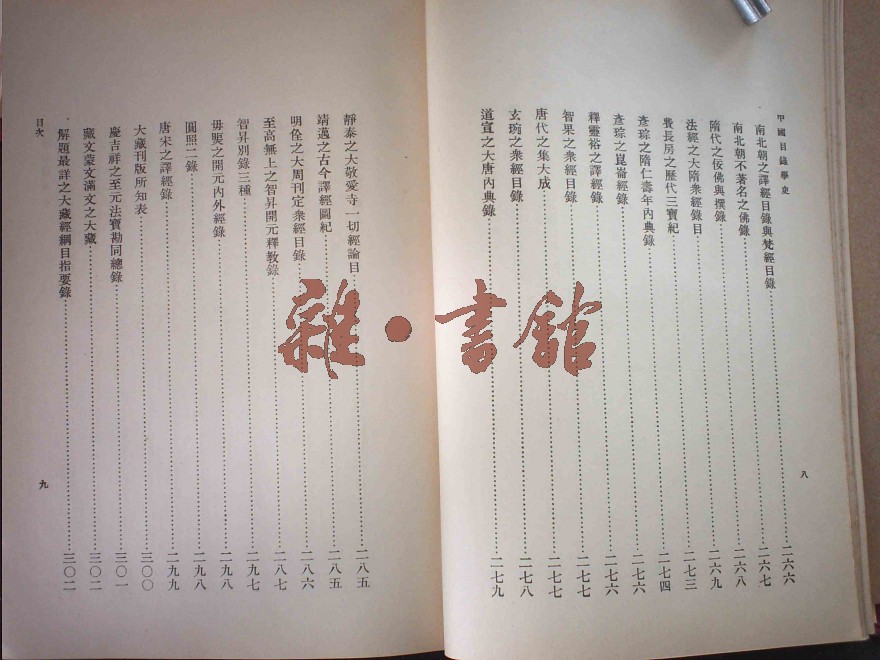 中國目錄學史
南北朝之譯經目錄與梵經目錄……二六六
南北朝不著名之佛錄……二六七
隋代之佞佛與撰錄……二六八
法經之大隋衆經錄目……二六九
費長房之歷代三寶紀……二七三
彥琮之隋仁壽年內典錄……二七四
彥琮之崑崙經錄……二七六
釋靈裕之譯經錄……二七六
智果之衆經目錄……二七七
唐代之集大成……二七七
玄琬之衆經目錄……二七八
道宣之大唐內典錄……二七九
八
靜泰之大敬愛寺一切經論目……二八五
靖邁之古今譯經圖紀……二八五
明佺之大周刊定衆經目錄……二八六
至高無上之智昇開元釋教錄……二八七
智昇別錄三種……二九七
毋煚之開元內外經錄……二九八
圓照二錄……二九八
唐宋之譯經錄……二九九
大藏刊版所知表……三〇〇
慶吉祥之至元法寶勘同總錄……三〇一
藏文蒙文滿文之大藏……三〇二
解題最詳之大藏經綱目指要錄……三〇二
目次
九
雜·書館